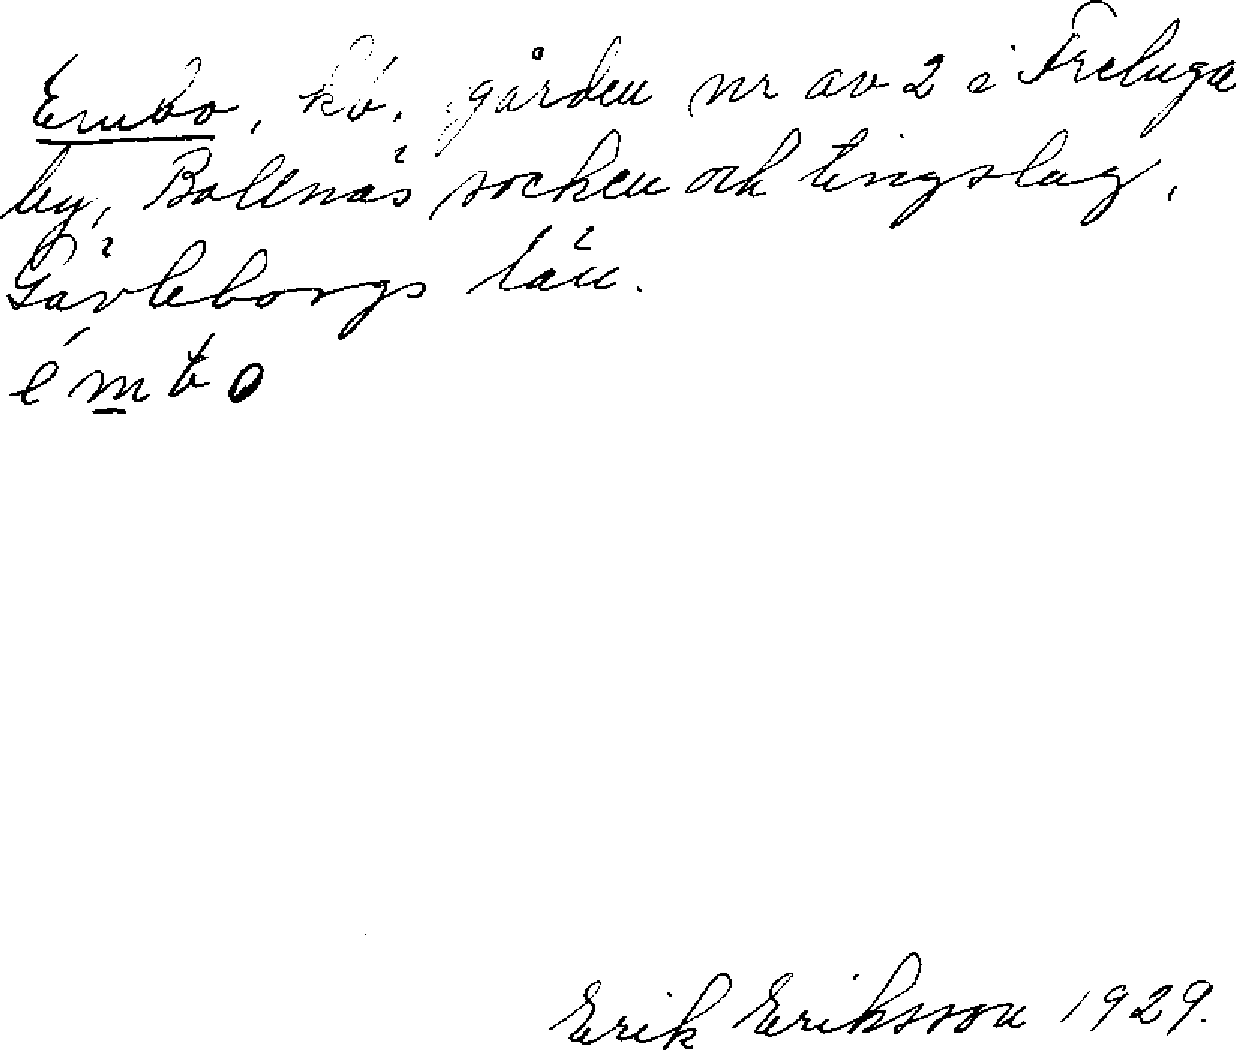 Embo, kö. gården nr av 2 i Freluga
by, Bollnäs socken och tingslag,
Gävleborgs län.
émbo
Erik Eriksson 1929.